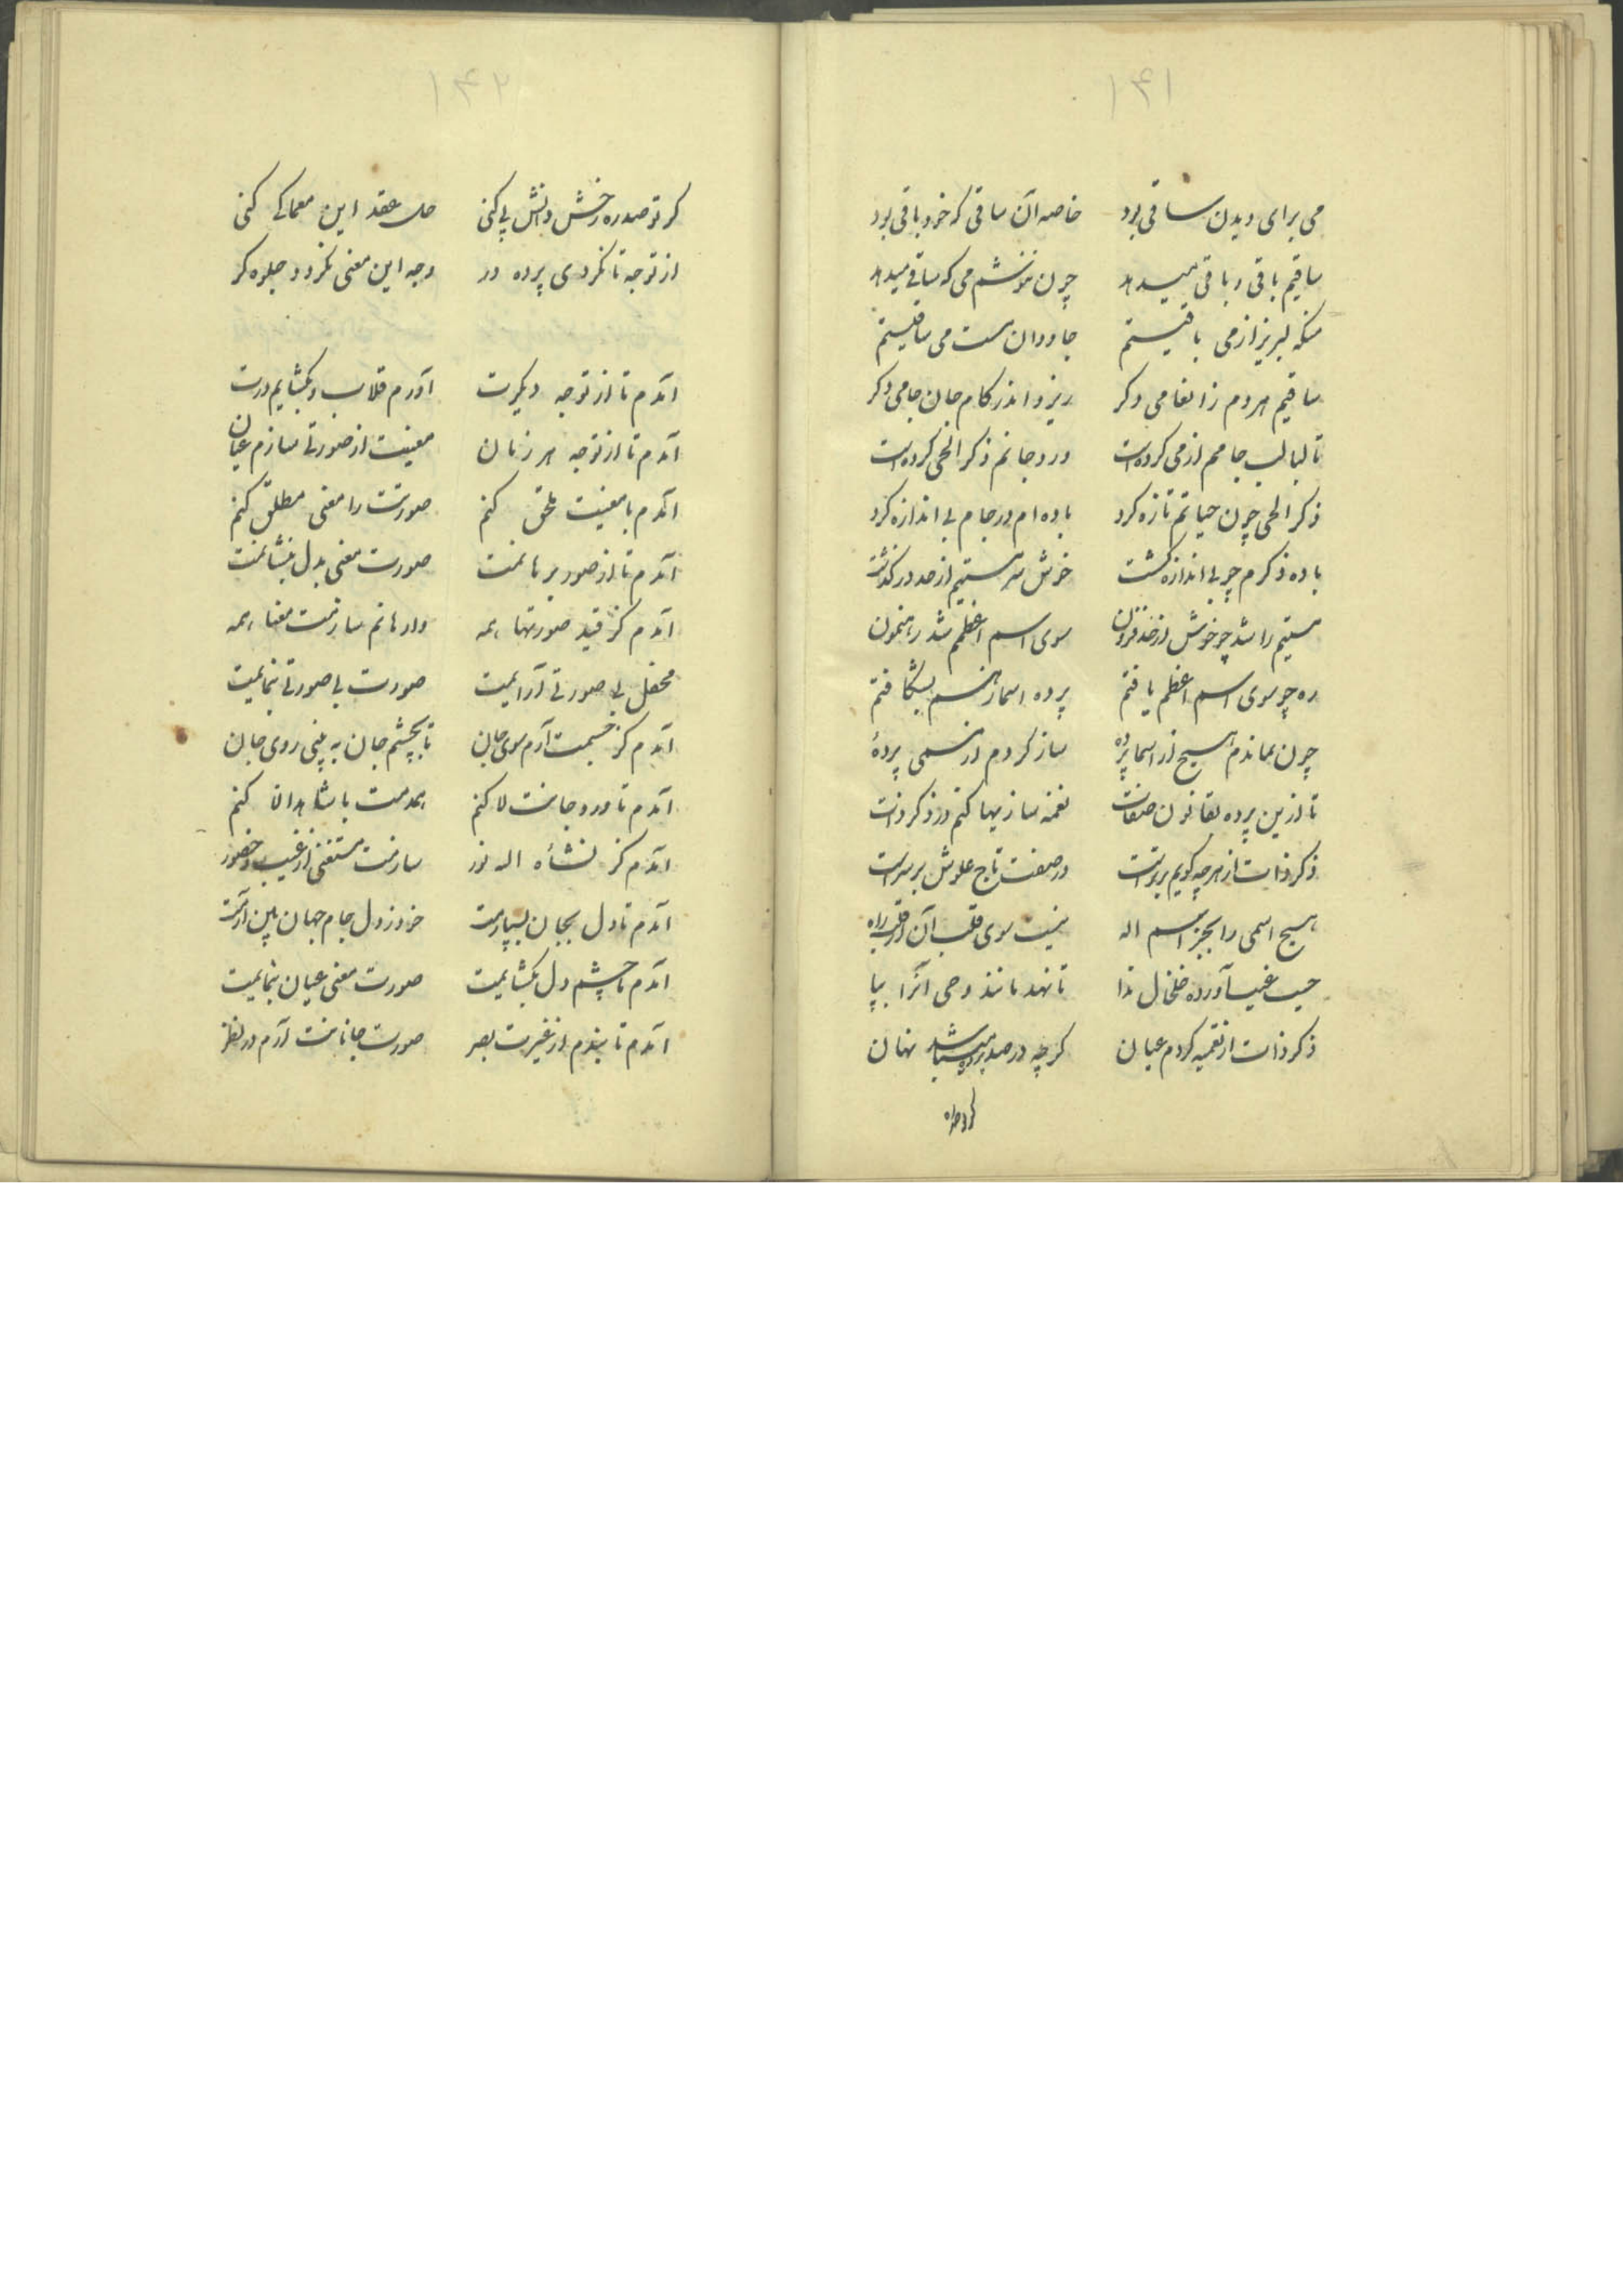 ۱۴۱
می برای دیدن ساقی بود خاصه آن ساقی که خود باقی بود
ساقیم باقی و باقی میدهد چون ننوشم می که ساقی میدهد
منکه لبریز از می باقیستم جاودان مست می ساقیستم
ساقیم هر دم ز انعامی دکر ریزد اندر کام جان جامی دکر
تا لبالب جامم از می کرده است ورد جانم ذکر الحی کرده است
ذکر الحی چون حیاتم تازه کرد باده ام در جام بی اندازه کرد
باده ذکرم چو بی اندازه کشت خوش سر مستیم از حد در کذشت
مستیم را شد چو خوش از حد فزون سوی اسم اعظمم شد رهنمون
ره چو سوی اسم اعظم یافتم پرده اسما ز هم بشکافتم
چون نماندم هیچ از اسما پرده ساز کردم از مسمی پردهٔ
تا ازین پرده بقانون صفات نغمه سازیها کنم در ذکر ذات
ذکر ذات از هرچه کویم برتر است در صفت تاج علوش بر سر است
هیچ اسمی را بجز اسم اله نیست سوی قلب آن در قلب راه
جیب غیب آورده خلخال ندا تا نهد مانند وحی آنرا بپا
ذکر ذات از تعمیه کردم عیان کرچه در صد پرده میباشد نهان
کر تو صدره
۱۴۲
کر تو صدره رخش دانش پی کنی حل عقد این معما کی کنی
از توجه تا نکردی پرده در وجه این معنی نکردد جلوه کر
آمدم تا از توجه دیکرت آورم قلاب و بکشایم درت
آمدم تا از توجه هر زمان معنیت از صورتی سازم عیان
آمدم با معنیت ملحق کنم صورتت را معنی مطلق کنم
آمدم تا از صور برهانمت صورت معنی بدل بنشانمت
آمدم کز قید صورتها همه وارهانم سازمت معنا همه
محفل بی صورتی آرایمت صورت بی صورتی بنمایمت
آمدم کز جسمت آرم سوی جان تا بچشم جان به بینی روی جان
آمدم تا ورد جانت لا کنم همدمت با شاهد الا کنم
آمدم کز نشأه اله نور سازمت مستغنی از غیب و حضور
آمدم تا دل بجان بسپارمت خود ز دل جام جهان بین آرمت
آمدم تا چشم دل بکشایمت صورت معنی عیان بنمایمت
آمدم تا بندم از غیرت بصر صورت جانانت آرم در نظر